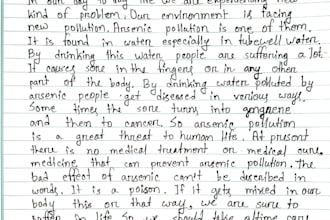 In our day to day life we are experiencing new
kind of problem. Our environment is facing
new pollution. Arsenic pollution is one of them.
It is found in water especially in tubewell water.
By drinking this water people are suffering a lot.
It causes sore in the fingers or in any other
part of the body. By drinking water polluted by
arsenic people get diseased in verious ways.
Some times the sore turns into gengrene
and then to cancer. So arsenic pollution
is a great threat to human life. At present
there is no medical treatment or medical cure.
medicine that can prevent arsenic pollution. The
bad effect of arsenic can't be described in
words. It is a poison. If it gets mixed in our
body this or that way, we are sure to
suffer in life So we should take